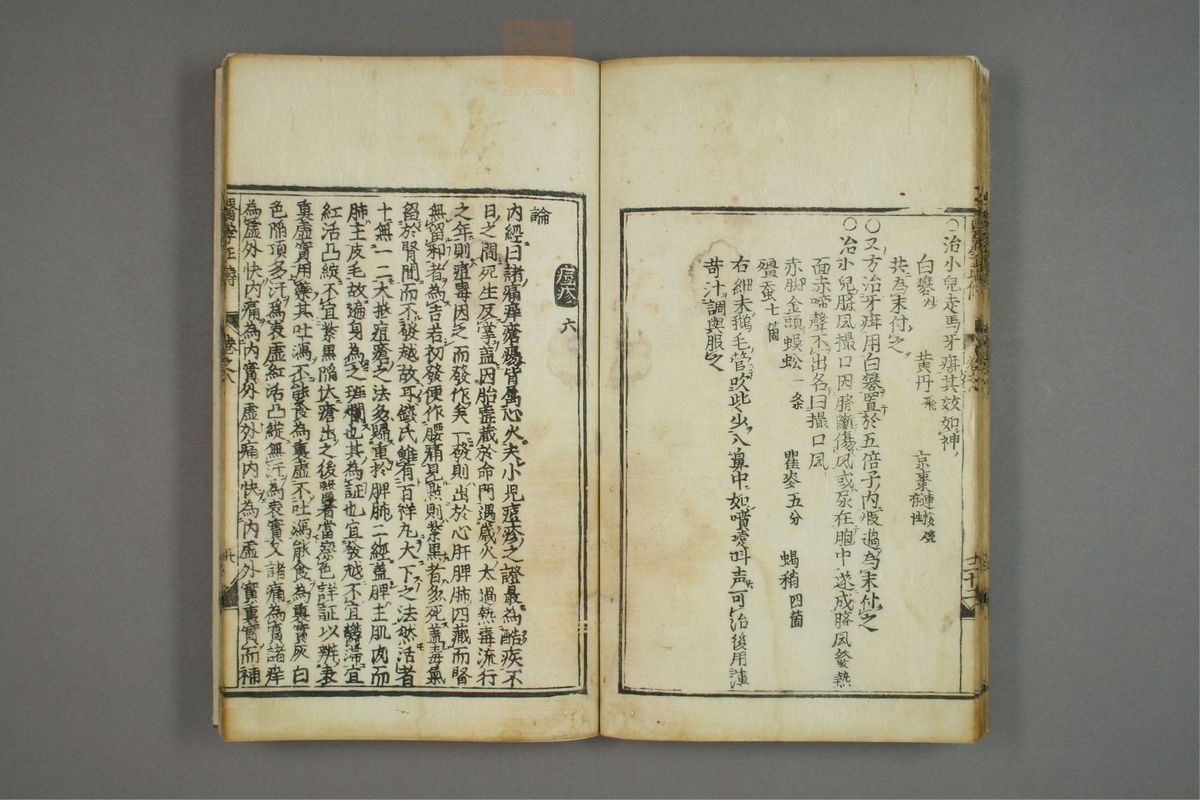 ○治小兒走馬牙疳其效如神
白礬 黄丹飛 京棗
共為末付之
○又方治牙疳用白礬置於五倍子内煅過為末付之
○治小兒臍風撮口因臍斷傷風或尿在胞中遂成臍風發熱
面赤啼聲不出名曰撮口風
赤脚金頭蜈蚣一条 瞿麥五分 蝎梢四箇
殭蚕七箇
右細末鵝毛管吹些少入鼻中如嚏噴叫声可治後用薄
荷汁調與服之
痘疹 六
論
内經曰諸痛痒瘡瘍皆属心火夫小児痘疹之證最為酷疾不
日之間死生反掌蓋因胎毒藏於命門遇歲火太過熱毒流行
之年則痘毒因之而發作矣一發則出於心肝脾肺四藏而腎
無留邪者為吉若初發便作腰痛見點則紫黒者多死蓋毒氣
留於腎間而不發越故耳錢氏雖有百祥丸大下之法然活者
十無一二大抵痘瘡之法多歸重於脾肺二經蓋脾主肌肉而
肺主皮毛故遍身為之班爛也其為証也宜發越不宜鬱滞宜
紅活凸綻不宜紫黒陥伏瘡出之後醫者當察色詳証以辨表
裏虚實用藥其吐瀉不能食為裏虚不吐瀉能食為裏實灰白
色陥頂多汗為表虚紅活凸綻無汗為表實又諸痛為實諸痒
為虚外快内痛為内實外虚外痛内快為内虚外實裏實而補
醫學正傳 卷之八